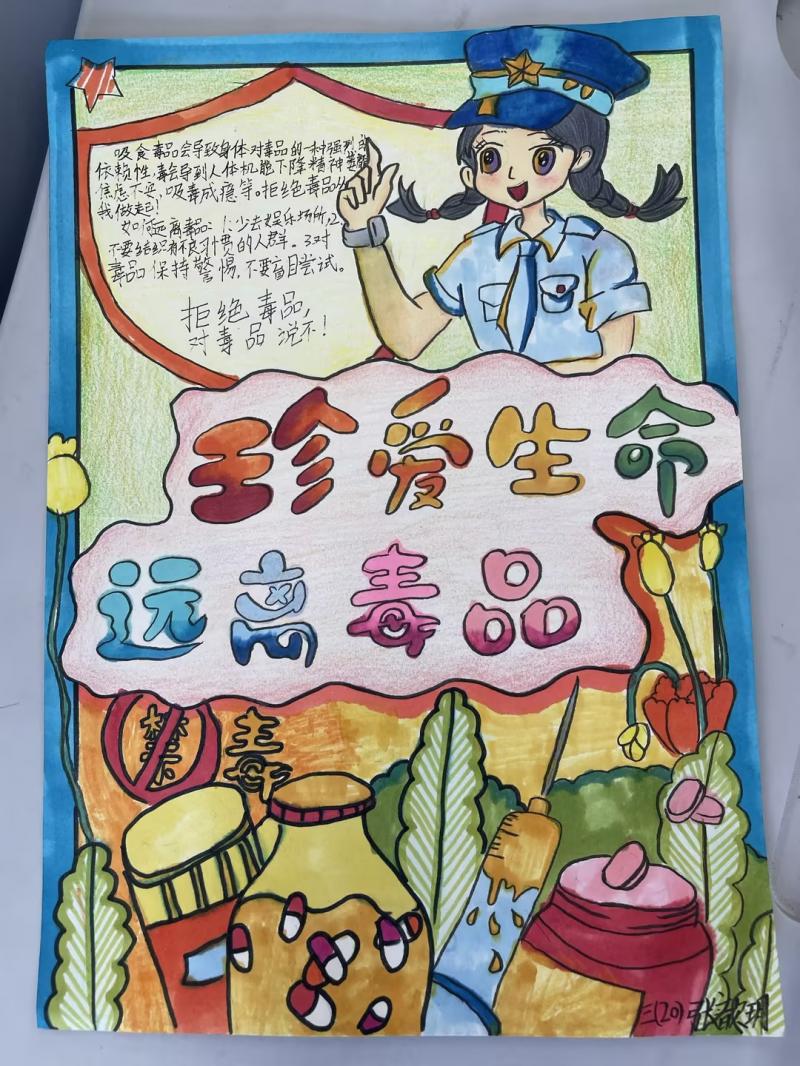 吸食毒品会导致身体对毒品的一种强烈的
依赖性,毒会导到人体机能下降精神
焦虑不安,吸毒成瘾等。拒绝毒品
我做起!
如何远离毒品 1.少去娱乐场所,2.
不要结织有不良习惯的人群。3对
毒品保持警惕,不要盲目尝试。
拒绝毒品,
对毒品说不!
珍爱生命
远离毒品
禁毒
三(20)张歆玥